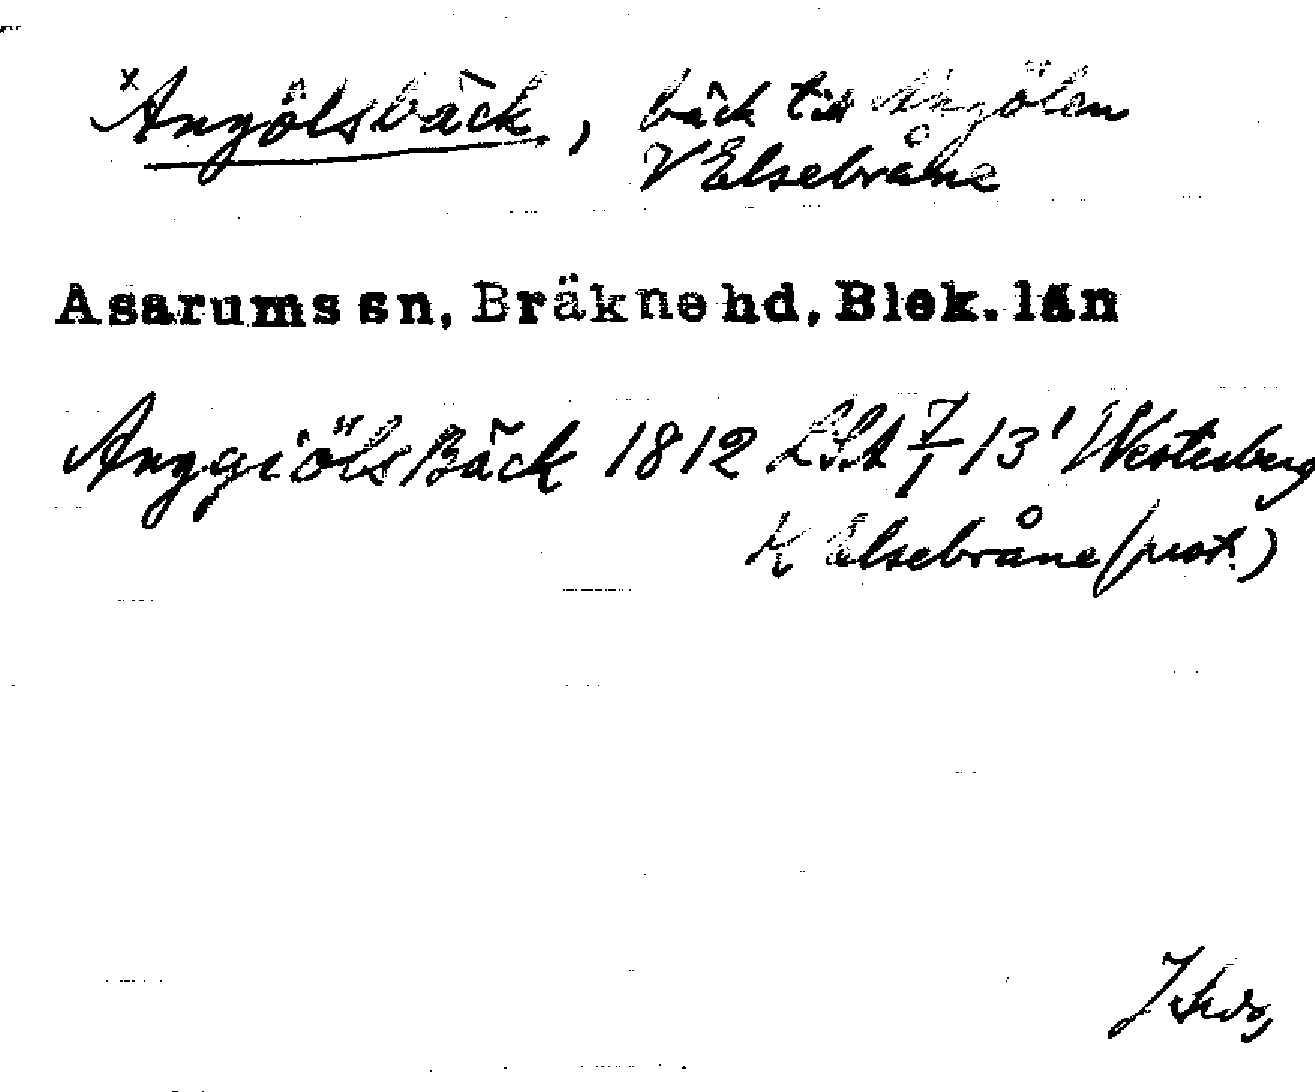 ˣAngölsbäck, bäck till Angölen
V Elsebråne
Asarums sn, Bräkne hd, Blek. län
AnggiölsBäck 1812 LSA 7/1 13¹ Westerberg
K Elsebråne (prot.)